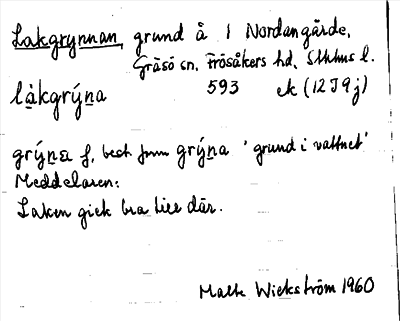 Lakgrynnan, grund å 1 Nordangärde,
Gräsö sn, Frösåkers hd, Sthlms l.
593 ek (12I9j)
làkgrýn̲a
grýn̲a f, best form grýn̲a 'grund i vattnet'
Meddelaren:
Laken gick bra till där.
Malte Wickström 1960